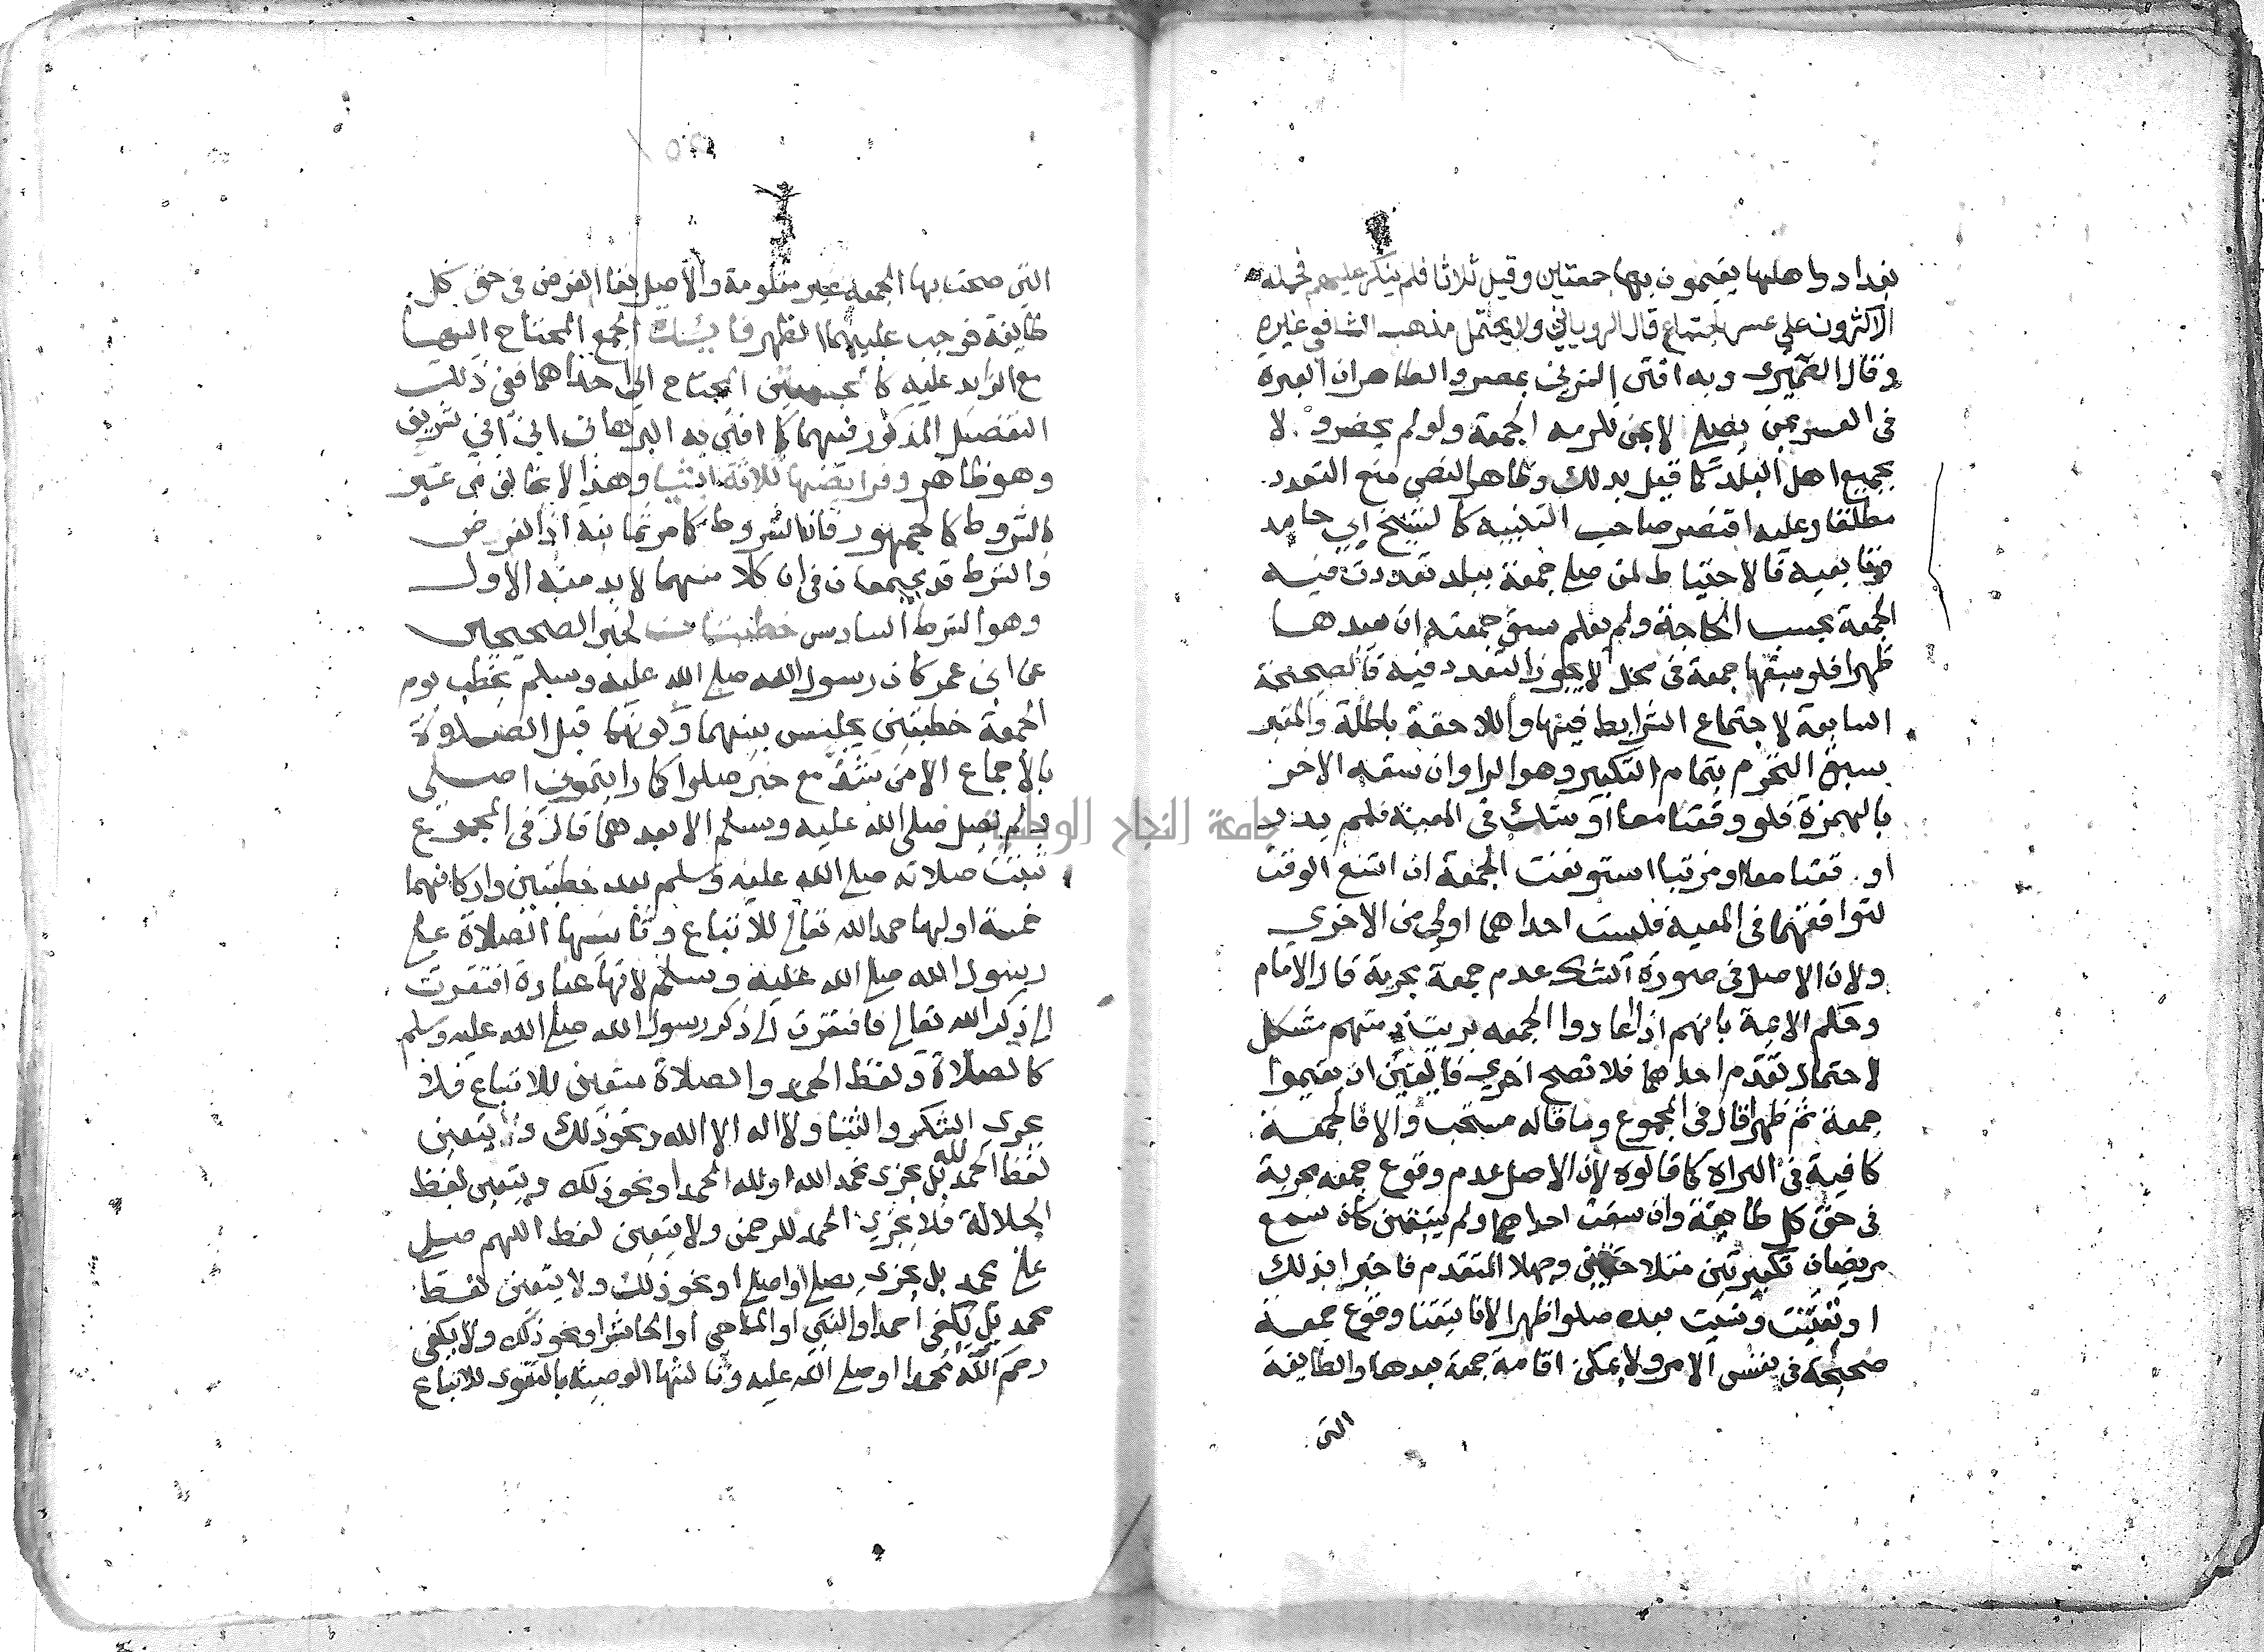 بغداد واهلها يقيمون بها جمعتين وقيل ثلاثا فلم ينكر عليهم فحمله
الاكثرون على عسر الاجتماع قال الروياني ولا يحتمل مذهب الشافعي غيره
وقال الصيمري وبه افتى المزني بمصر والظاهر ان العبرة
في العسر بمن يصلي لا بمن تلزمه الجمعة ولو لم يحضر ولا
بجميع اهل البلد كما قيل بذلك وظاهر النص منع التعدد
مطلقا وعليه اقتصر صاحب التنبيه كالشيخ ابي حامد
ومتابعيه فالاحتياط لمن صلى جمعة ببلد تعددت فيه
الجمعة بحسب الحاجة ولم يعلم سبق جمعته ان يعيدها
ظهرا فلو سبقها جمعة في محل لا يجوز التعدد فيه فالصحيحة
السابقة لاجتماع الشرايط فيها واللاحقة باطلة والمعتبر
سبق التحرم بتمام التكبير وهو الرا وان سبقه الاخر
بالهمزة فلو وقعتا معا او شك في المعية فلم يدر
او قعتا معا او مرتبا استونفت الجمعة ان اتسع الوقت
لتوافقهما في المعية فليست احداهما اولى من الاخرى
ولان الاصل في صورة الشك عدم جمعة مجزية قال الامام
وحكم الايمة بانهم اذا اعادوا الجمعه بريت ذمتهم مشكل
لاحتمال تقدم احداهما فلا تصح اخرى فاليقين ان يقيموا
جمعة ثم ظهرا قال في المجموع وما قاله مستحب والا فالجمعة
كافية في البراة كما قالوه لان الاصل عدم وقوع جمعه مجزية
في حق كل طايفة وان سبقت احداهما ولم يتعين كان سمع
مريضان تكبيرتين مثلا وجهلا المتقدم فاخبرا بذلك
او تعينت ونسيت بعده صلوا ظهرا لانا تيقنا وقوع جمعة
صحيحة في نفس الامر ولا يمكن اقامة جمعة بعدها والطايفة
التي
التي صحت بها الجمعه غير معلومة والاصل بقا الفرض في حق كل
طايفة فوجب عليهما الظهر فايدة الجمع المحتاج اليها
مع الزايد عليه كالجمعتين المحتاج الى احداهما ففي ذلك
التفصيل المذكور فيهما كما افتى به البرهان ابن ابي شريف
وهو ظاهر وفرايضها ثلاثة ايضا وهذا لا يخالف من عبر
بالشروط كالجمهور فان الشروط كما مر ثمانية اذ الفرض
والشرط قد يجتمعان في ان كلا منهما لا بد منه الاول
وهو الشرط السادس خطبتان لخبر الصحيحين
عن ابن عمر كان رسول الله صلى الله عليه وسلم يخطب يوم
الجمعة خطبتين يجلس بينهما وكونهما قبل الصلاة
بالاجماع الا من شذ مع خبر صلوا كما رايتموني اصلي
ولم يصل صلى الله عليه وسلم الا بعدهما قال في المجموع
ثبتت صلاته صلى الله عليه وسلم بعد خطبتين واركانهما
خمسة اولها حمد الله تعالى للاتباع وثانيها الصلاة على
رسول الله صلى الله عليه وسلم لانها عبادة افتقرت
الى ذكر الله تعالى فافتقرت الى ذكر رسول الله صلى الله عليه وسلم
كالصلاة ولفظ الحمد والصلاة متعين للاتباع فلا
يجزي الشكر والثنا ولا اله الا الله ونحو ذلك ولا يتعين
لفظ الحمد لله بل يجزي نحمد الله او لله الحمد او نحو ذلك ويتعين لفظ
الجلالة فلا يجزي الحمد للرحمن ولا يتعين لفظ اللهم صل
على محمد بل يجزي يصلي او اصلي او نحو ذلك ولا يتعين لفظ
محمد بل يكفي احمد او النبي او الماحي او الحاشر او نحو ذلك ولا يكفي
رحم الله محمدا او صلى الله عليه وثالثها الوصية بالتقوى للاتباع
جامعة النجاح الوطنية